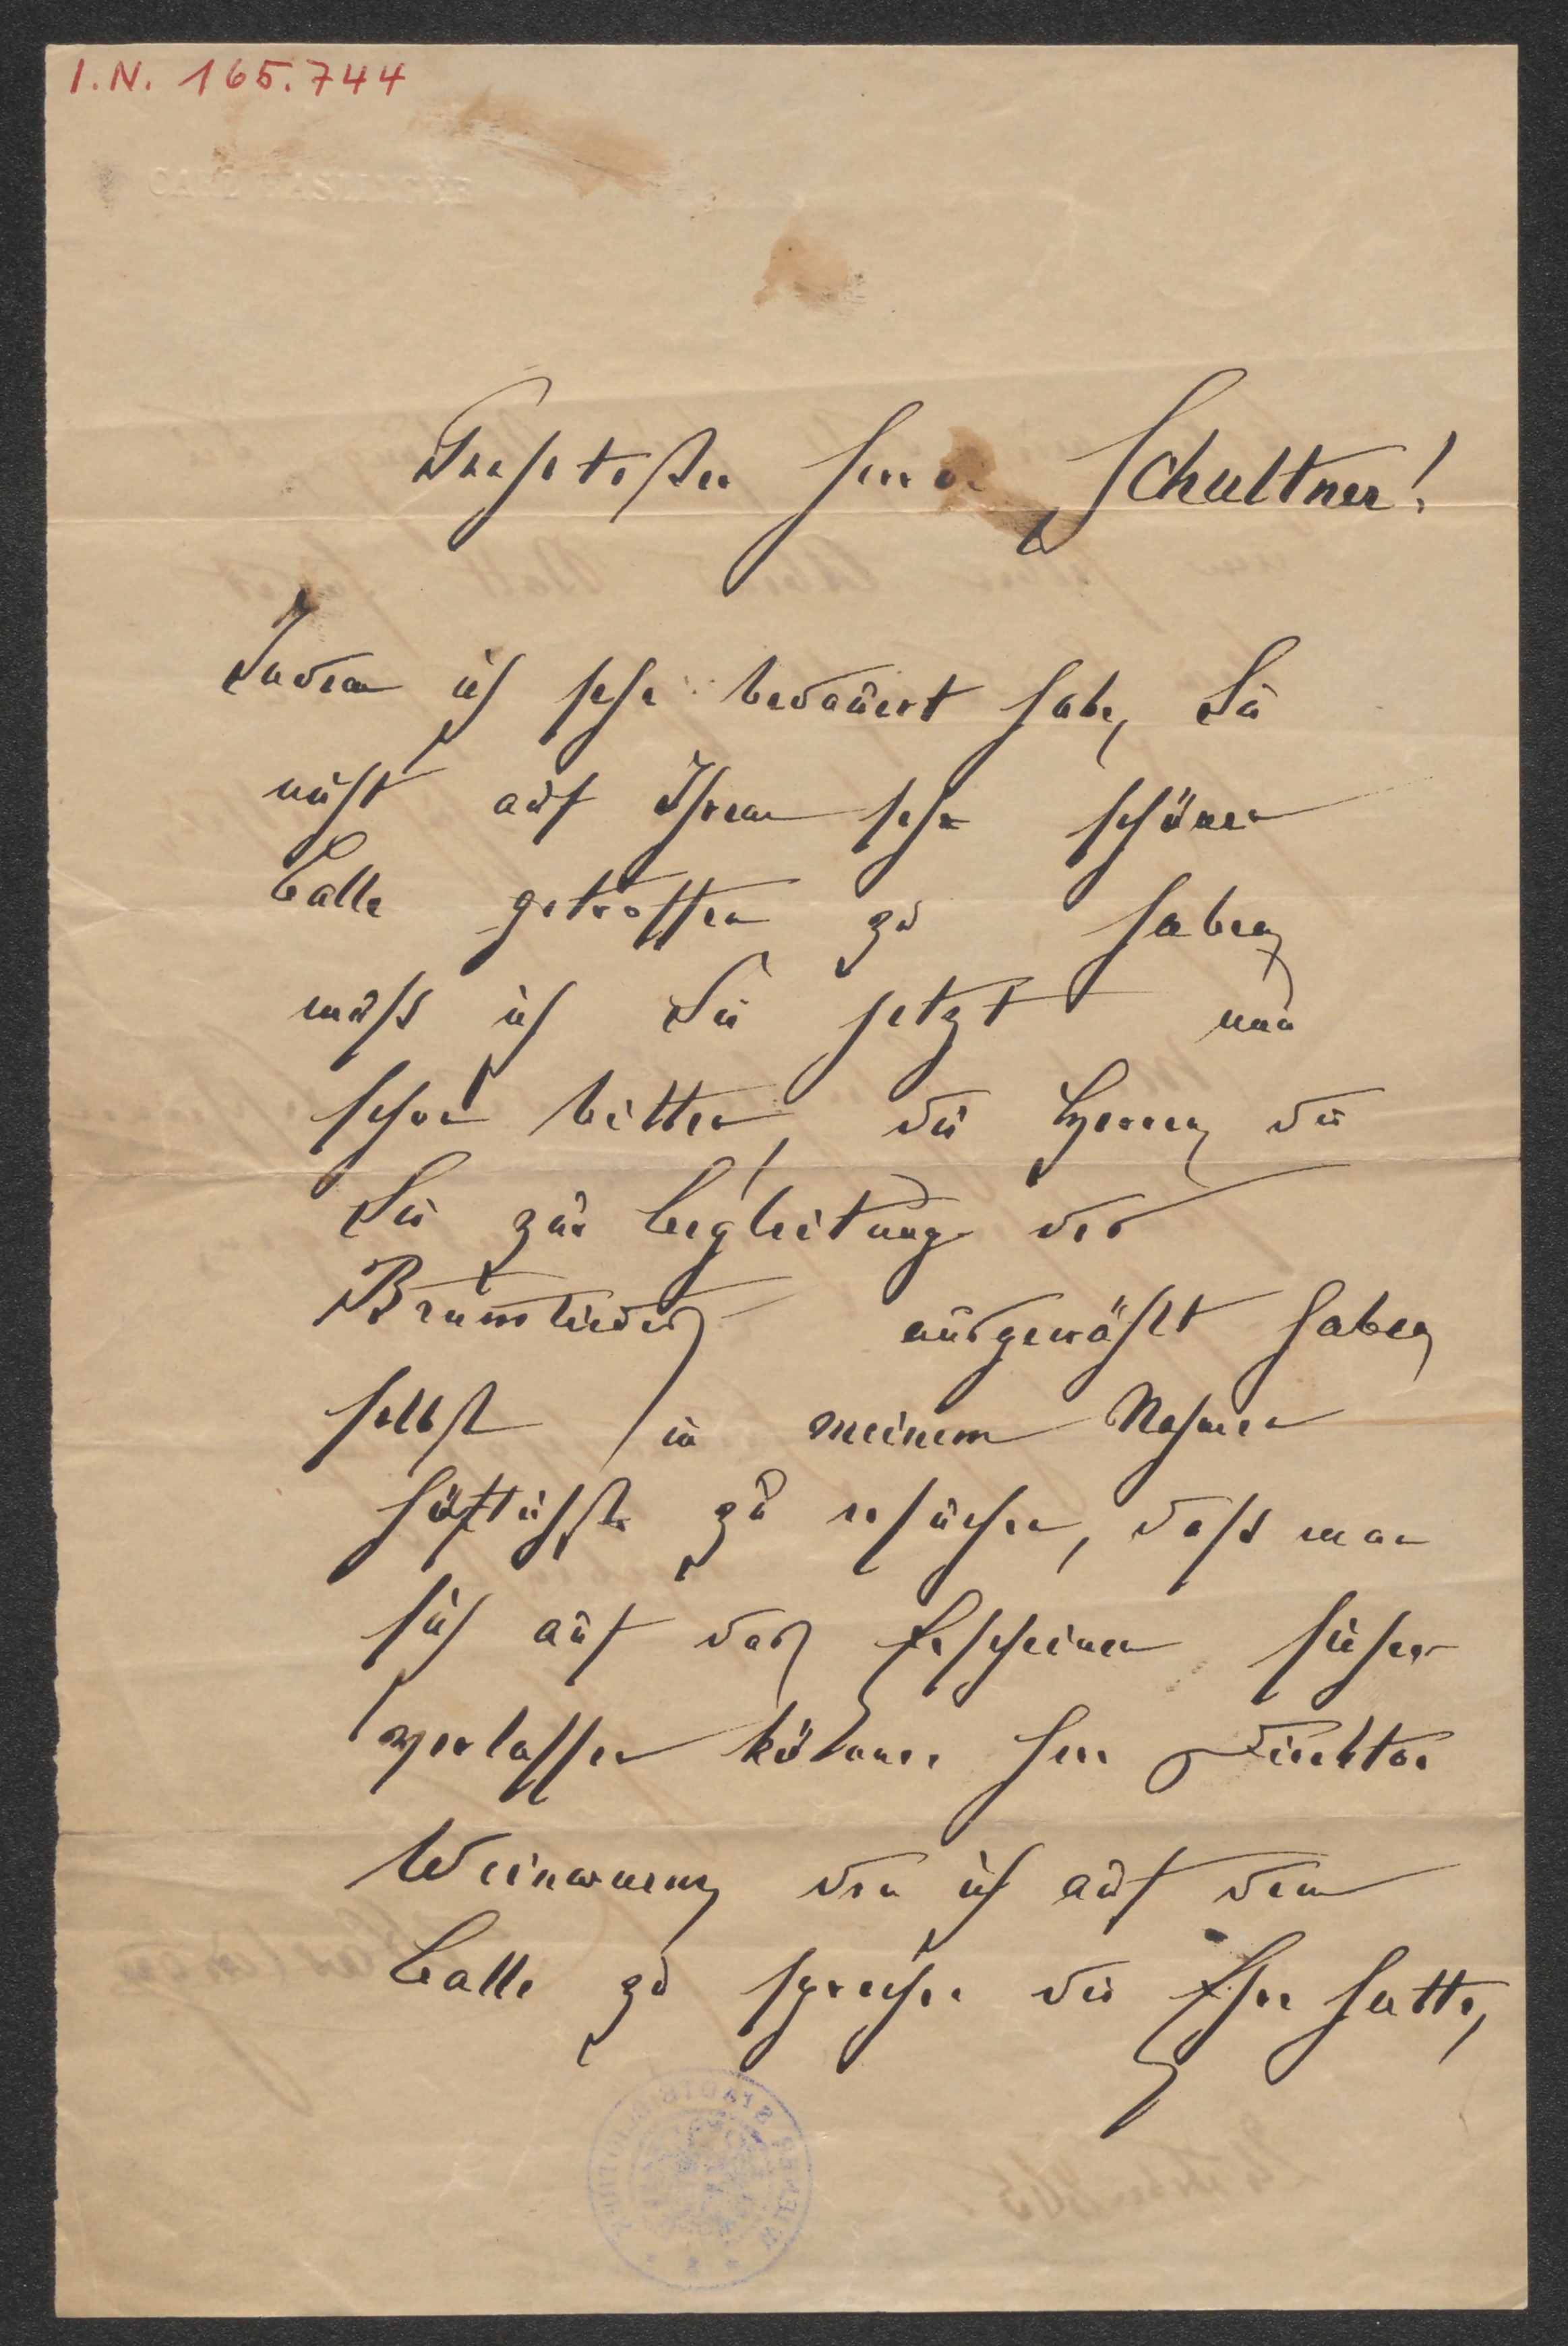 I.N. 165.744
CARL HASLINGER
Geehrtester Herr v. Schultner!
Indem ich sehr bedauert habe, Sie
nicht auf Ihrem sehr schönen
Balle getroffen zu haben,
muß ich Sie jetzt nun
schon bitten, die Herren, die
Sie zur Begleitung des
Brumliedes ausgewählt haben,
selbst in meinem Nahmen
höflichst zu ersuchen, daß man
sich auf das Erscheinen sicher
verlassen könne. Herr Direktor
Weinwurm, den ich auf dem
Balle zu sprechen die Ehre hatte,